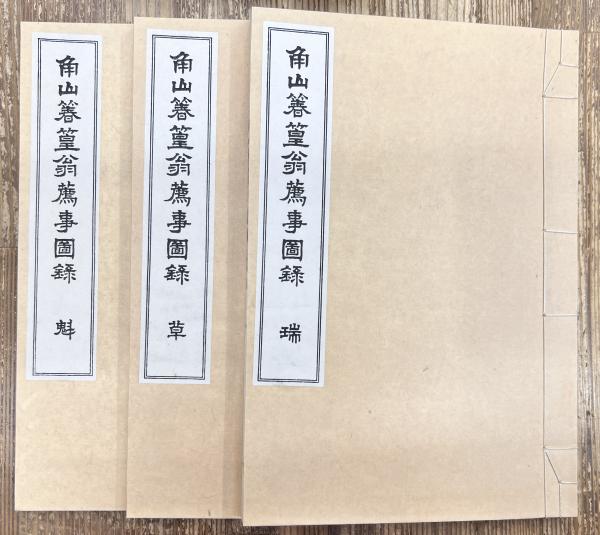 角山箺篁翁薦事圖錄 瑞
角山箺篁翁薦事圖錄 草
角山箺篁翁薦事圖錄 魁